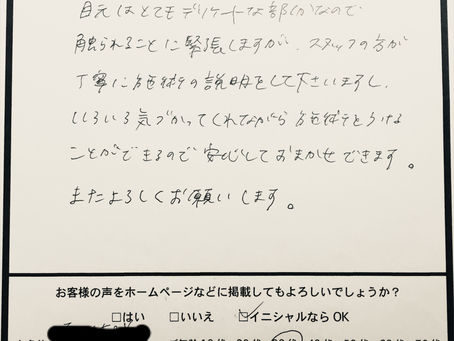 目元はとてもデリケートな部分なので
触られることに緊張しますが、スタッフの方が
丁寧に施術の説明をして下さいますし、
いろいろ気づかってくれながら施術をうける
ことができるので安心しておまかせできます。
またよろしくお願いします。
お客様の声をホームページなどに掲載してもよろしいでしょうか？
□はい □いいえ ☑イニシャルなら OK